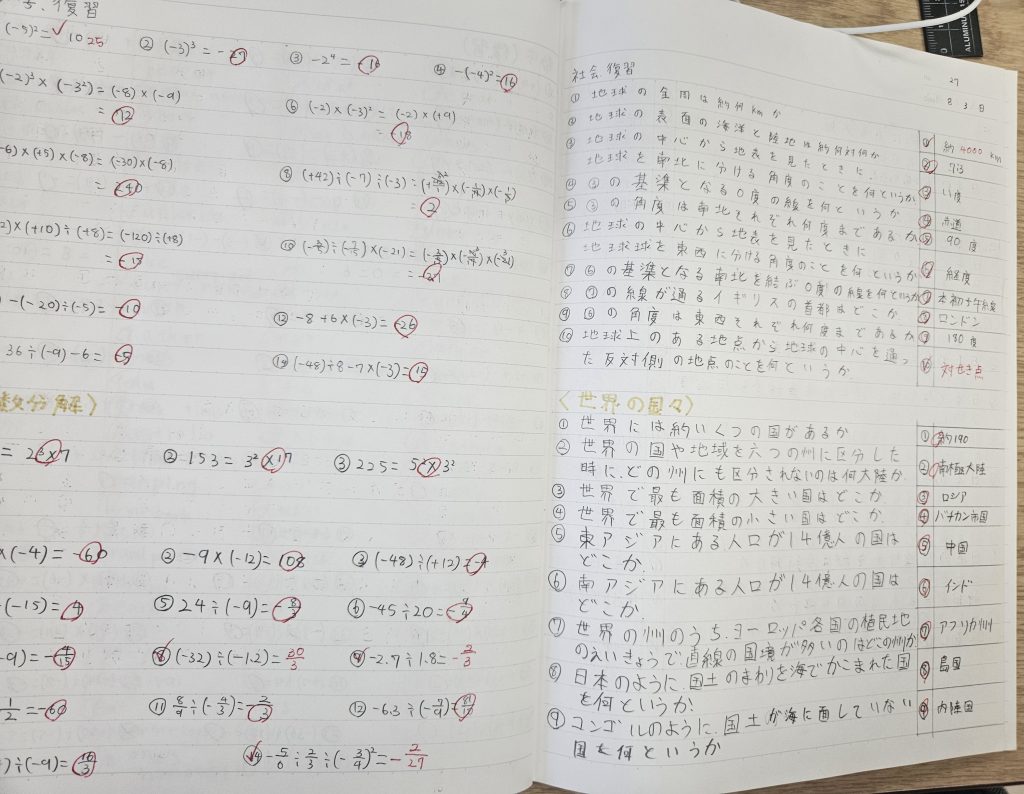 復習
(-5)²= 10 25
② (-3)³ = -27
③ -2⁴ = -16
④ -(-4)²=16
(-2)³ × (-3²) = (-8) × (-9)
= 72
⑥ (-2) × (-3)² = (-2) × (+9)
= -18
-6) × (+5) × (-8) = (-30) × (-8)
⑧ (+42) ÷ (-7) ÷ (-3)
= 2
2) × (+10) ÷ (+8) = (-120) ÷ (+8)
= -15
×(-21)
= -21
-(-20) ÷ (-5) = -10
⑫ -8 + 6 × (-3) = -26
36 ÷ (-9) - 6 =
⑭ (-48) ÷ 8 - 7 × (-3) = 15
数分解〉
= 2³×7
② 153 = 3²×17
③ 225 = 5²×3²
×(-4) = -60
② -9 × (-12) = 108
③ (-48) ÷ (+12) = -4
(-15) = 4
⑤ 24 ÷ (-9) = -8/3
⑥ -45 ÷ 20 = -9/4
-9) = -4/15
⑧ (-32) ÷ (-1.2) =
⑨ -2.7 ÷ 1.8 =
1/2 = -60
⑪ 8/9 ÷ (-4/3) = -2/3
⑫ -6.3
) ÷ (-9) = 10/3
⑭ -5/6 ÷ 2/3 ÷ (-3/4)² =
27
8 3 日
社会復習
① 地球の全周は約何kmか
② 地球の表面の海洋と陸地は約何対何か
③ 地球の中心から地表を見たときに、
地球を南北に分ける角度のことを何というか
④ ③の基準となる0度の線を何というか
⑤ ③の角度は南北それぞれ何度まであるか
⑥ 地球の中心から地表を見たときに
地球球を東西に分ける角度のことを何というか
⑦ ⑥の基準となる南北を結ぶ0度の線を何というか
⑧ ⑦の線が通るイギリスの首都はどこか
⑨ ⑥の角度は東西それぞれ何度まであるか
⑩ 地球上のある地点から地球の中心を通っ
た反対側の地点のことを何というか
① 約4000km
② 7:3
③ い度
④ 赤道
⑤ 90度
⑥ 経度
⑦ 本初子午線
⑧ ロンドン
⑨ 180度
⑩ 対せき点
〈世界の国々〉
① 世界には約いくつの国があるか
② 世界の国や地域を六つの州に区分した
時に、どの州にも区分されないのは何大陸か
③ 世界で最も面積の大きい国はどこか
④ 世界で最も面積の小さい国はどこか
⑤ 東アジアにある人口が14億人の国は
どこか
⑥ 南アジアにある人口が14億人の国は
どこか
⑦ 世界の州のうち、ヨーロッパ各国の植民地
のえいきょうで直線の国境が多いのはどこの州か
⑧ 日本のように、国土のまわりを海でかこまれた国
を何というか
⑨ コンゴルのように、国土が海に面していない
国を何というか
① 約190
② 南極大陸
③ ロシア
④ バチカン市国
⑤ 中国
⑥ インド
⑦ アフリカ州
⑧ 島国
⑨ 内陸国